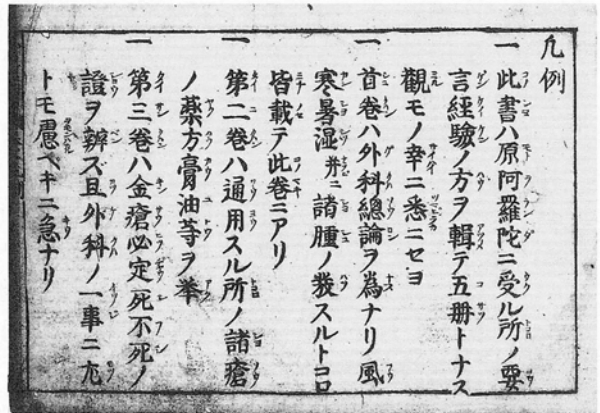 凡例
一 此書ハ原阿羅陀ニ受ル所ノ要
言経驗ノ方ヲ輯テ五册トナス
觀モノ幸ニ悉ニセヨ
一 首巻ハ外科總論ヲ為ナリ風
寒暑湿并ニ諸腫ノ発スルトコロ
皆載テ此巻ニアリ
一 第二巻ハ通用スル所ノ諸瘡
ノ藥方膏油等ヲ挙
一 第三巻ハ金瘡必定死不死ノ
證ヲ辨ズ且外科ノ一事ニ尤
トモ慮ベキニ急ナリ